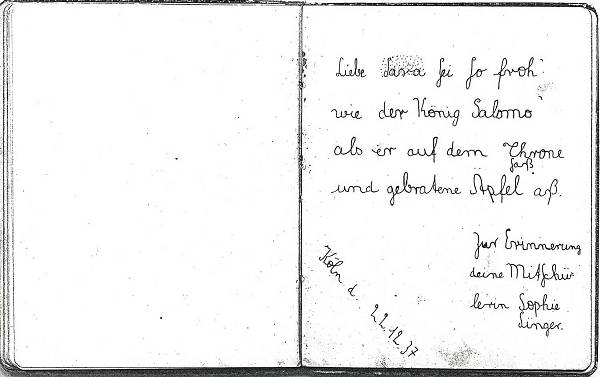 Liebe Sara sei so froh
wie der König Salomo
als er auf dem Throne
saß
und gebratene Äpfel aß.
Zur Erinnerung
deine Mitschü-
lerin Sophie
Linger.
Köln d. 22.12.37